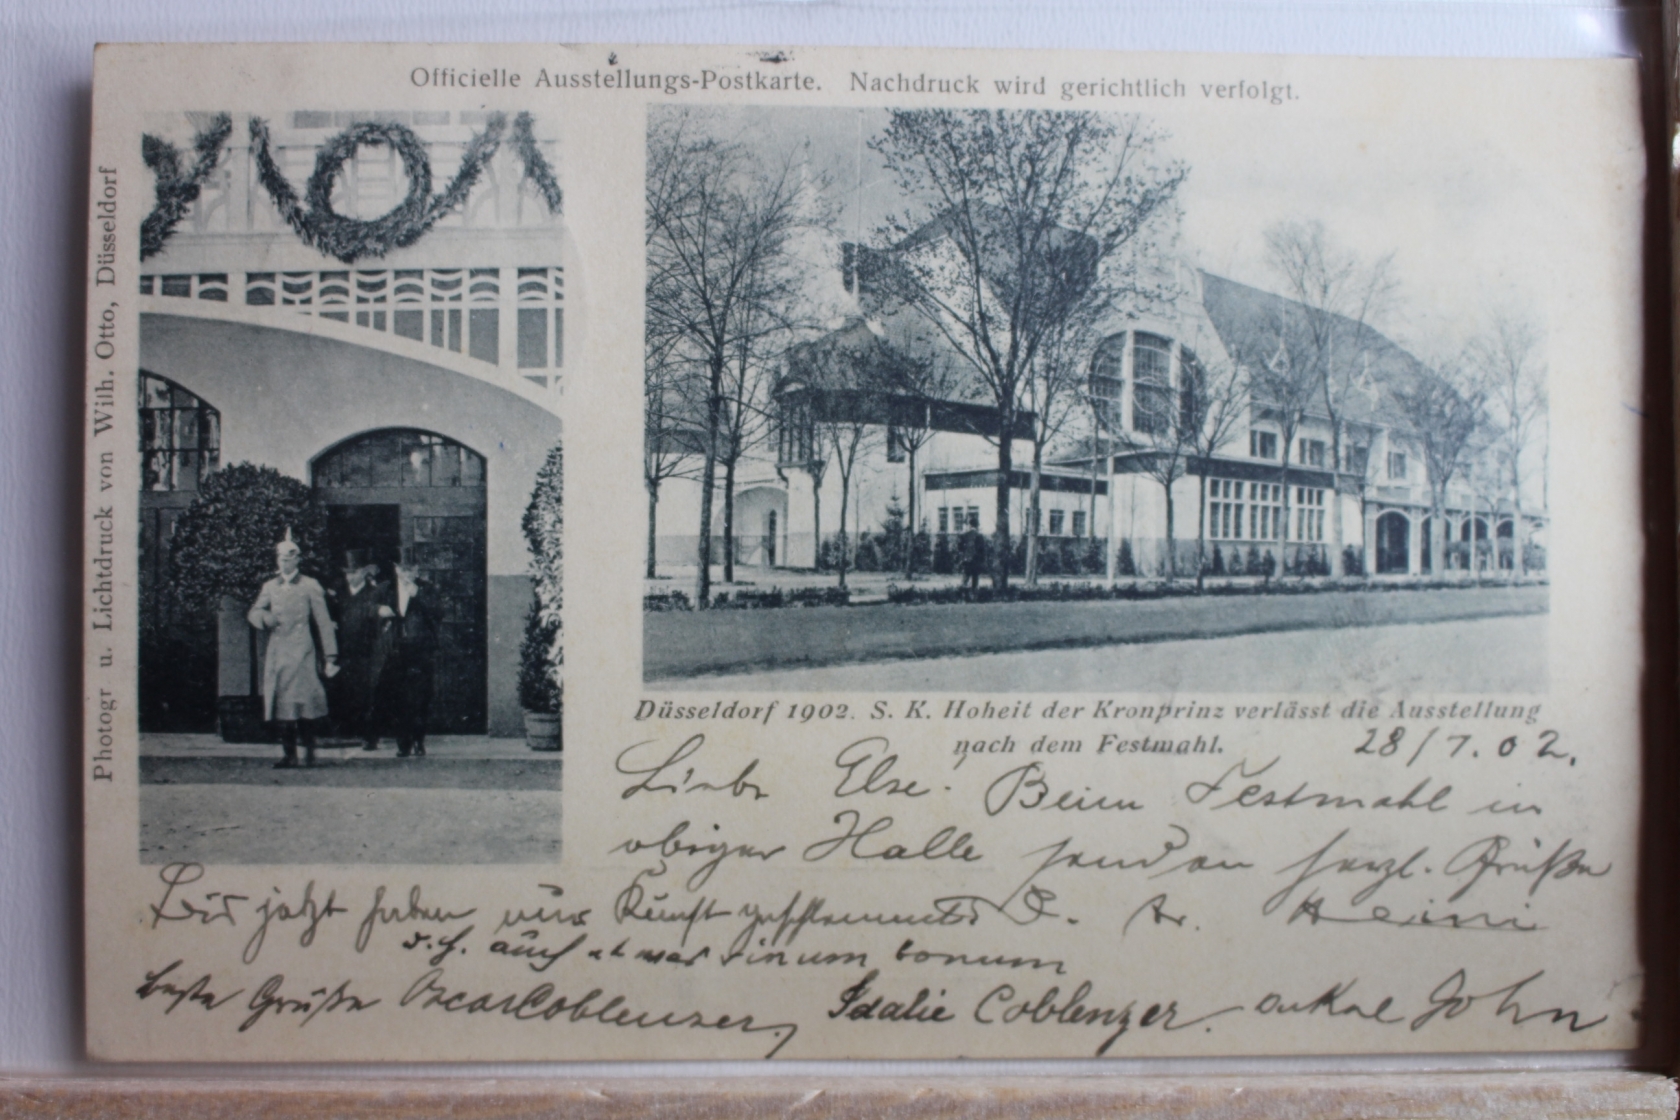 Officielle Ausstellungs-Postkarte. Nachdruck wird gerichtlich verfolgt.
Photogr. u. Lichtdruck von Wilh. Otto, Düsseldorf
Düsseldorf 1902. S. K. Hoheit der Kronprinz verlässt die Ausstellung
nach dem Festmahl.
28/7.02.
Liebe Else. Beim Festmahl in
obiger Halle senden herzl. Grüße
D. tr. Heini
Bis jetzt haben nur Kunst geschlemmt
d.h. auch etwas vinum bonum
beste Grüße Oscar Coblenzer,
Idalie Coblenzer. onkel John